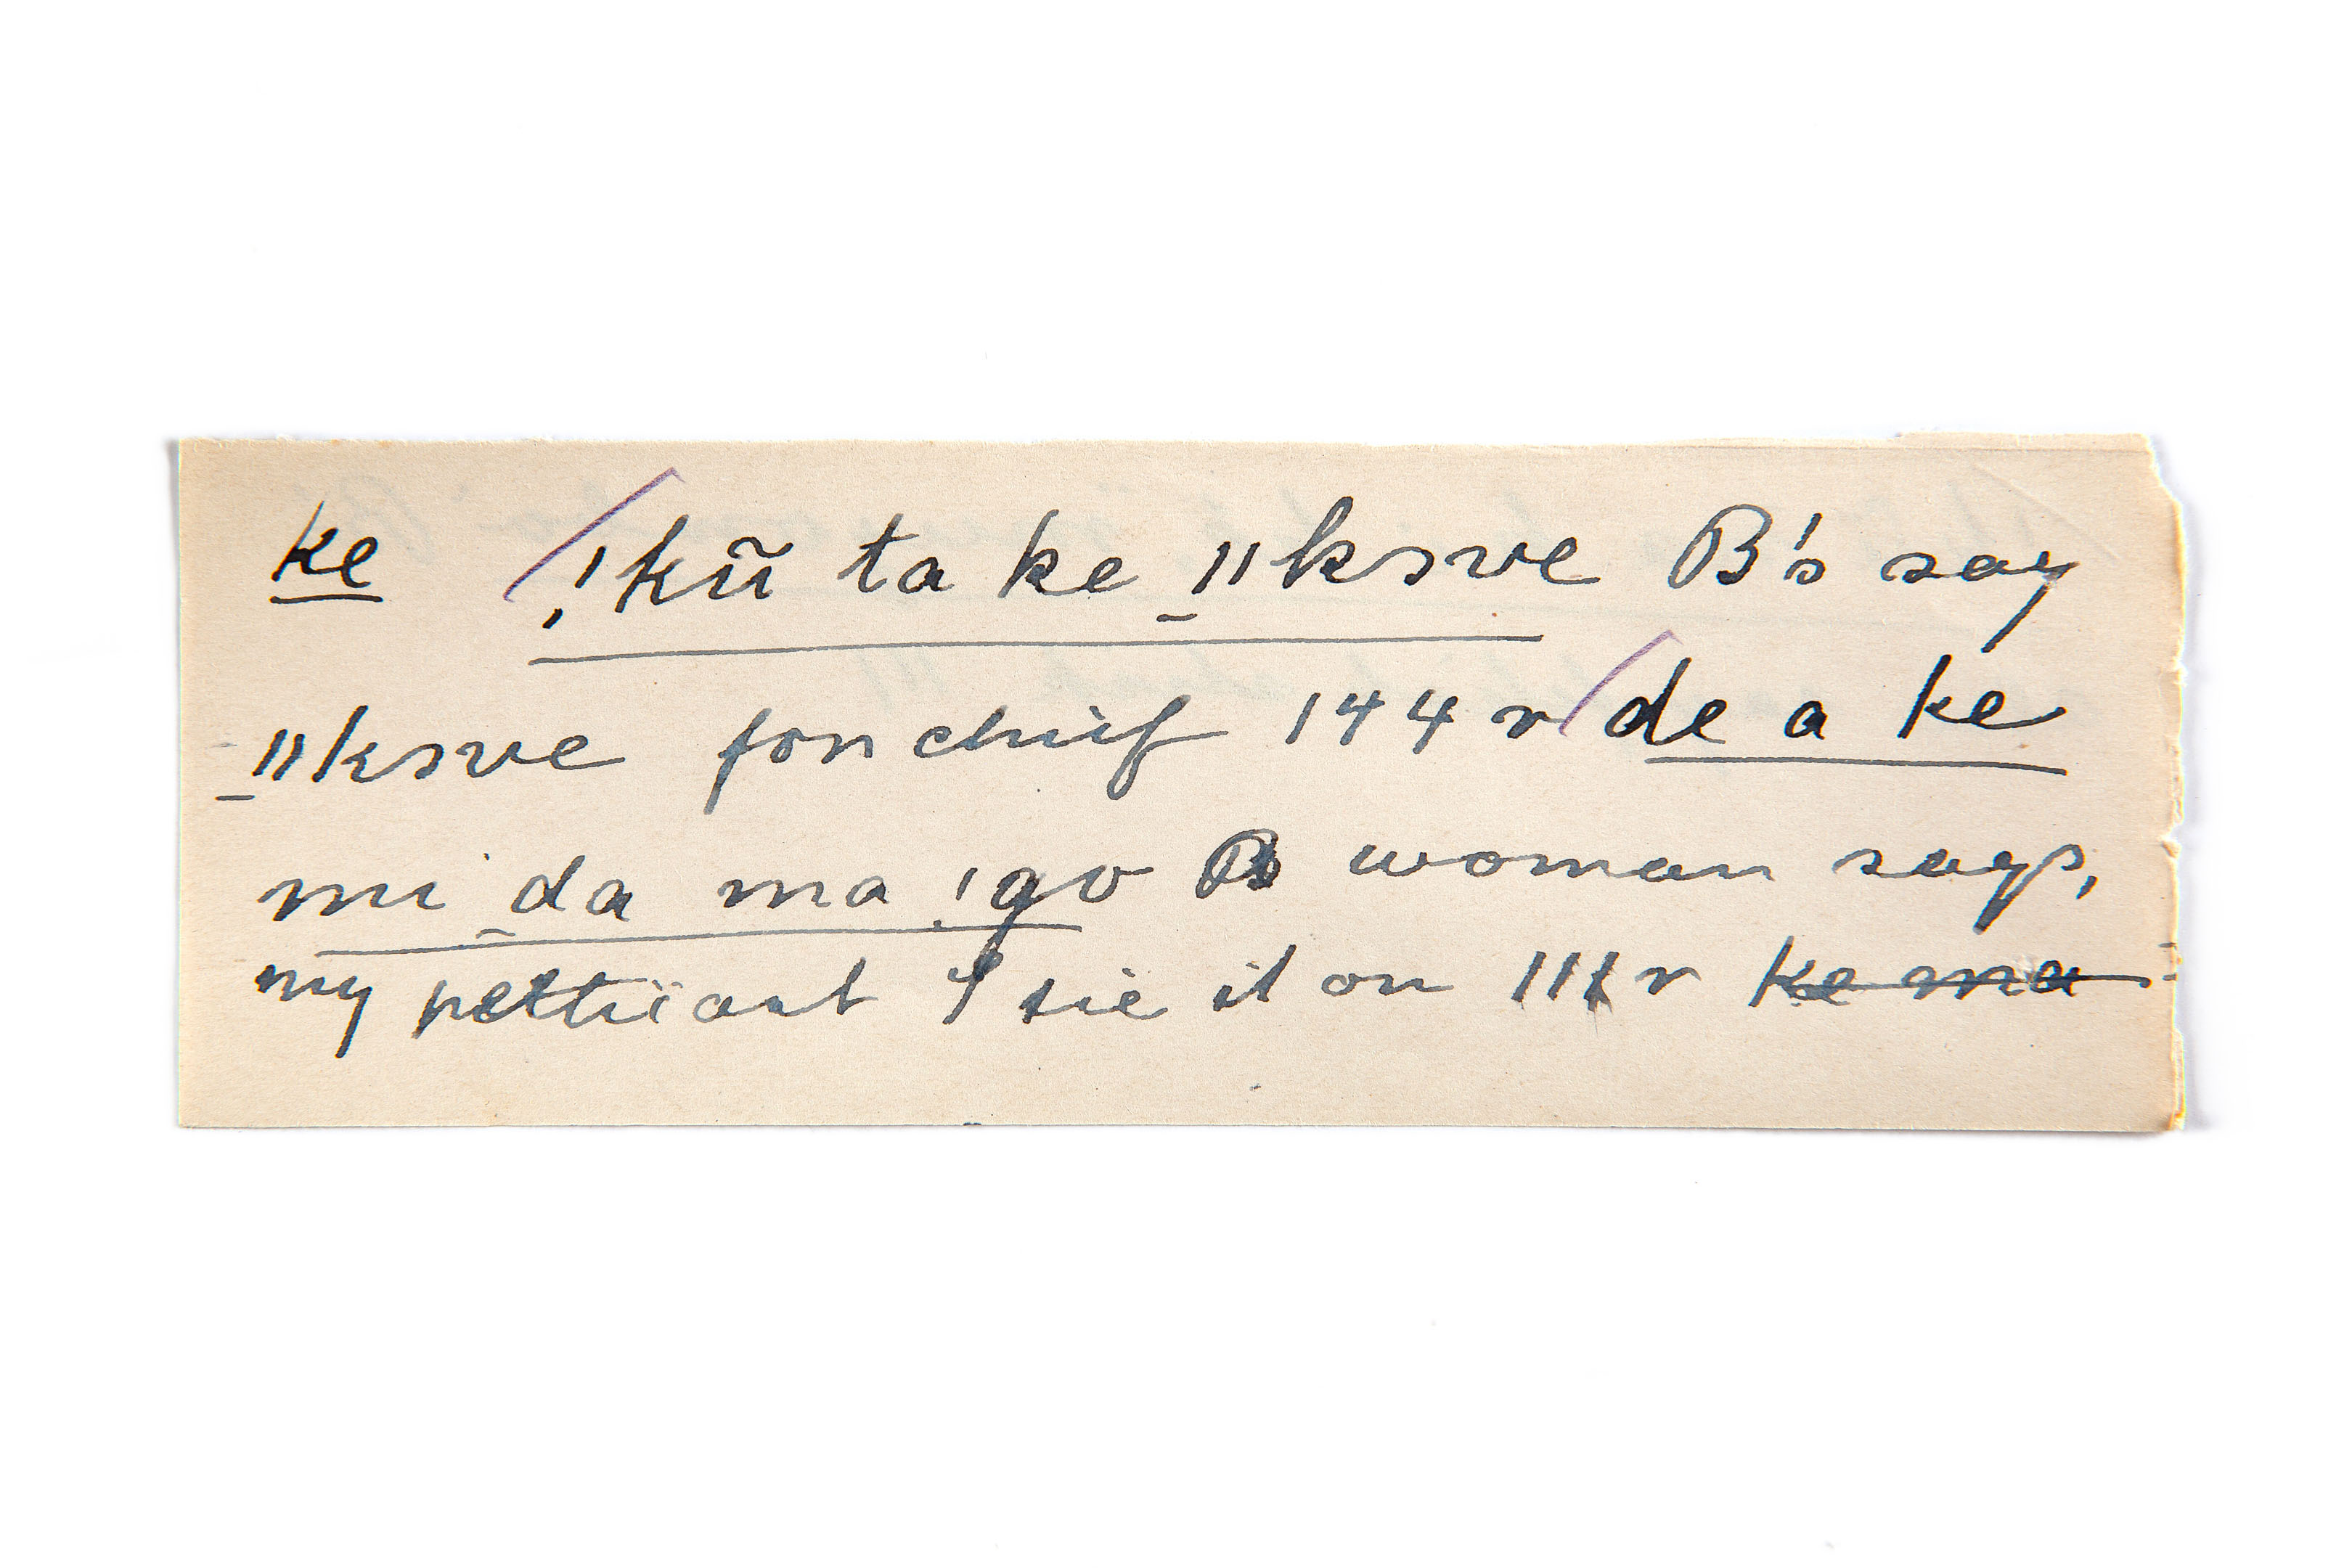 ke /!kũ ta ke ‖ksve B's say
‖ksve for chief 144 r /de a ke
mi da ma !go B woman says,
my petticoat I tie it on 111 r ke ma